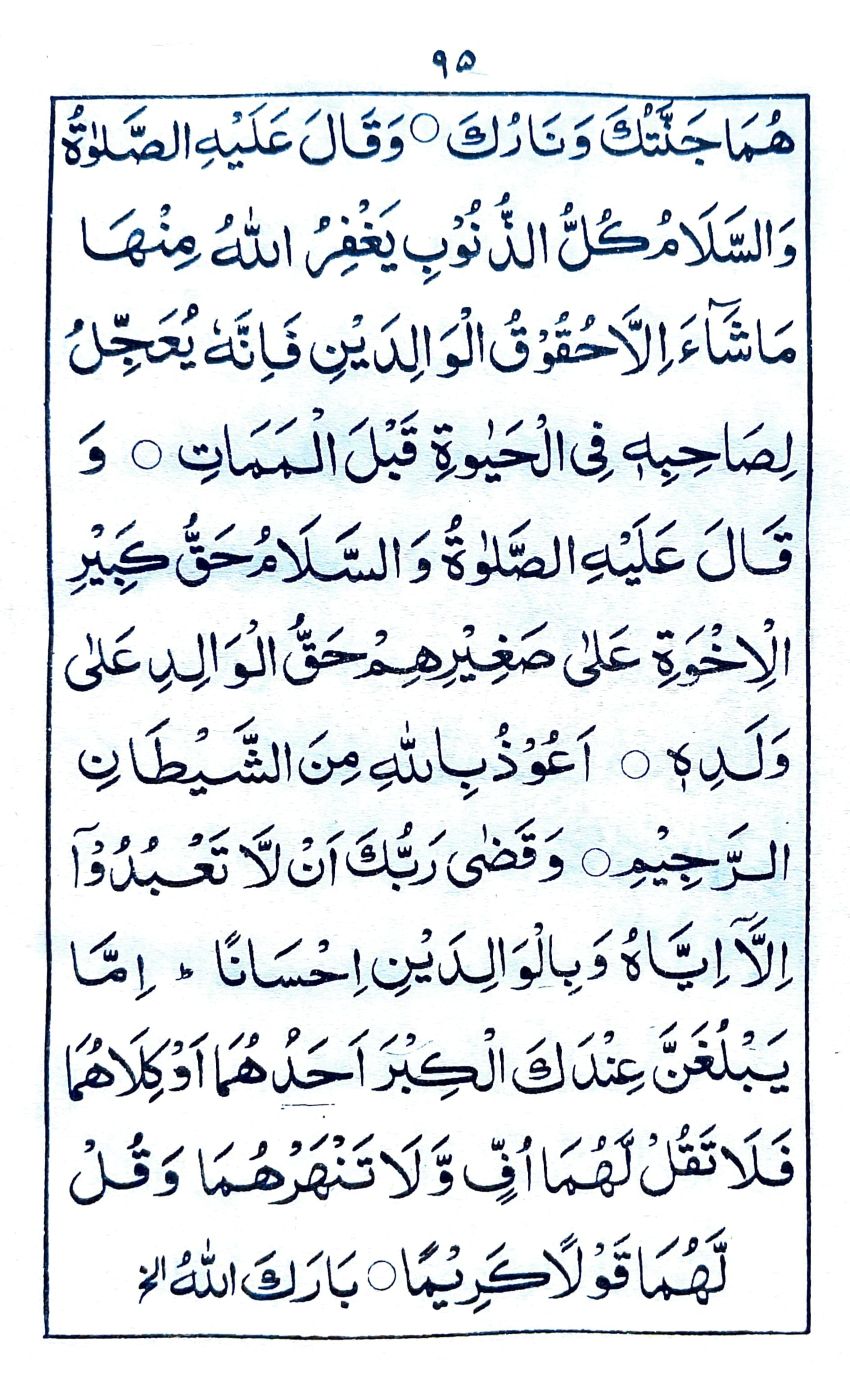 ۹۵
هُمَا جَنَّتُكَ وَنَارُكَ ○ وَقَالَ عَلَيْهِ الصَّلٰوةُ
وَالسَّلَامُ كُلُّ الذُّنُوْبِ يَغْفِرُ اللّٰهُ مِنْهَا
مَا شَآءَ اِلَّا حُقُوْقُ الْوَالِدَيْنِ فَاِنَّهٗ يُعَجِّلُ
لِصَاحِبِهٖ فِى الْحَيٰوةِ قَبْلَ الْمَمَاتِ ○ وَ
قَالَ عَلَيْهِ الصَّلٰوةُ وَالسَّلَامُ حَقُّ كَبِيْرِ
الْاِخْوَةِ عَلٰى صَغِيْرِهِمْ حَقُّ الْوَالِدِ عَلٰى
وَلَدِهٖ ○ اَعُوْذُ بِاللّٰهِ مِنَ الشَّيْطَانِ
الرَّجِيْمِ ○ وَقَضٰى رَبُّكَ اَنْ لَّا تَعْبُدُوْآ
اِلَّآ اِيَّاهُ وَبِالْوَالِدَيْنِ اِحْسَانًا ؕ اِمَّا
يَبْلُغَنَّ عِنْدَكَ الْكِبْرَ اَحَدُهُمَا اَوْكِلَاهُمَا
فَلَا تَقُلْ لَّهُمَا اُفٍّ وَّلَا تَنْهَرْهُمَا وَقُلْ
لَّهُمَا قَوْلًا كَرِيْمًا ○ بَارَكَ اللّٰهُ الخ